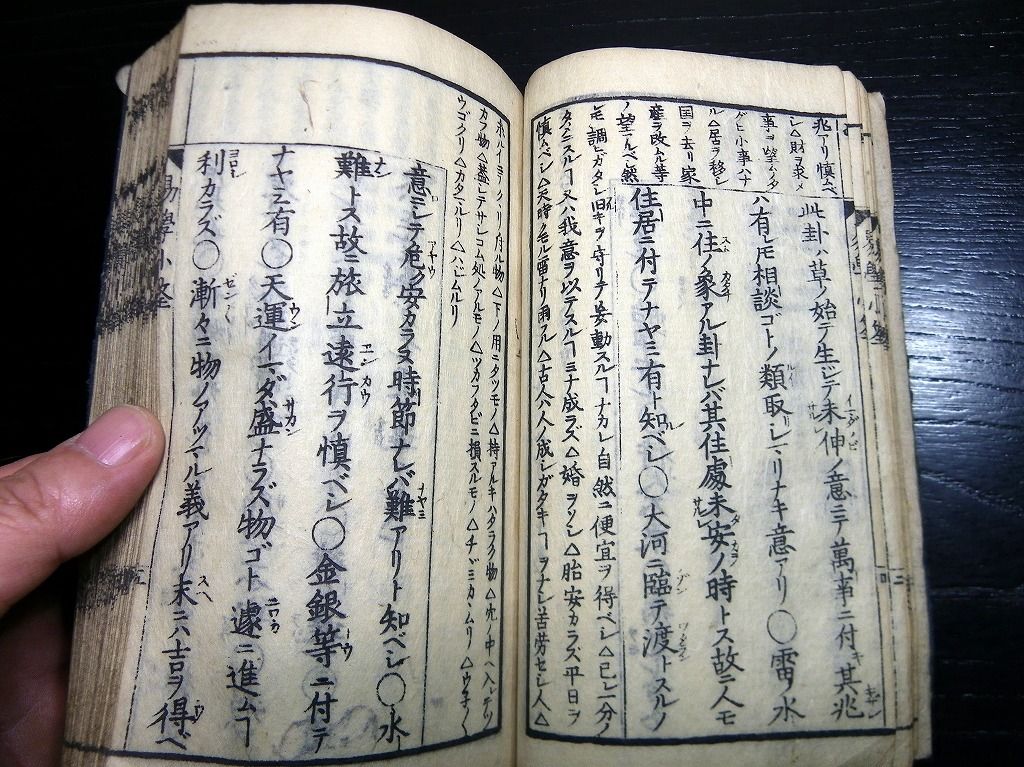 兆アリ慎ムベ
シ△財ヲ求メ
事ヲ望ムタ
ダヒ小事ハナ
ル△居ヲ移シ
国ヲ去リ家
産ヲ改ル等
ノ望アルベシ然
此卦ハ草ノ始テ生ジテ未伸ノ意ニテ萬事ニ付其兆
ハ有レトモ相談ゴトノ類取リシマリナキ意アリ〇雷水
中ニ住ノ象アル卦ナレバ其住處未安ノ時トス故ニ人モ
住居ニ付テナヤミ有ト知ベシ〇大河ニ臨テ渡トスルノ
モ調ヒガタシ旧キヲ守リテ妄動スルヿナカレ自然ニ便宜ヲ得ベシ△已レ一分ノ
タメニスルヿ又ハ我意ヲ以テスルヿミナ成ラズ△婚ヲソシ△胎安カラズ平日ヲ
慎ムベシ△天時ノモル雷ナリ雨フル△古人人ノ成シガタキヿヲナシ苦労セシ人△
物△下ノ用ニタツモノ△持アルキハタラク物△穴ノ中ヘ入レテツ
カフ物△蒸シテサシコム処ノアルモノ△ツカフタビニ損スルモノ
意ニシテ危ク安カラヌ時節ナレバ難アリト知ベシ〇水
難トス故ニ旅立遠行ヲ慎ベシ〇金銀等ニ付テ
ナヤミ有〇天運イマダ盛ナラズ物ゴト遽ニ進ムヿ
利カラズ〇漸々ニ物ノアツマル義アリ末ニハ吉ヲ得ベ
易學小筌